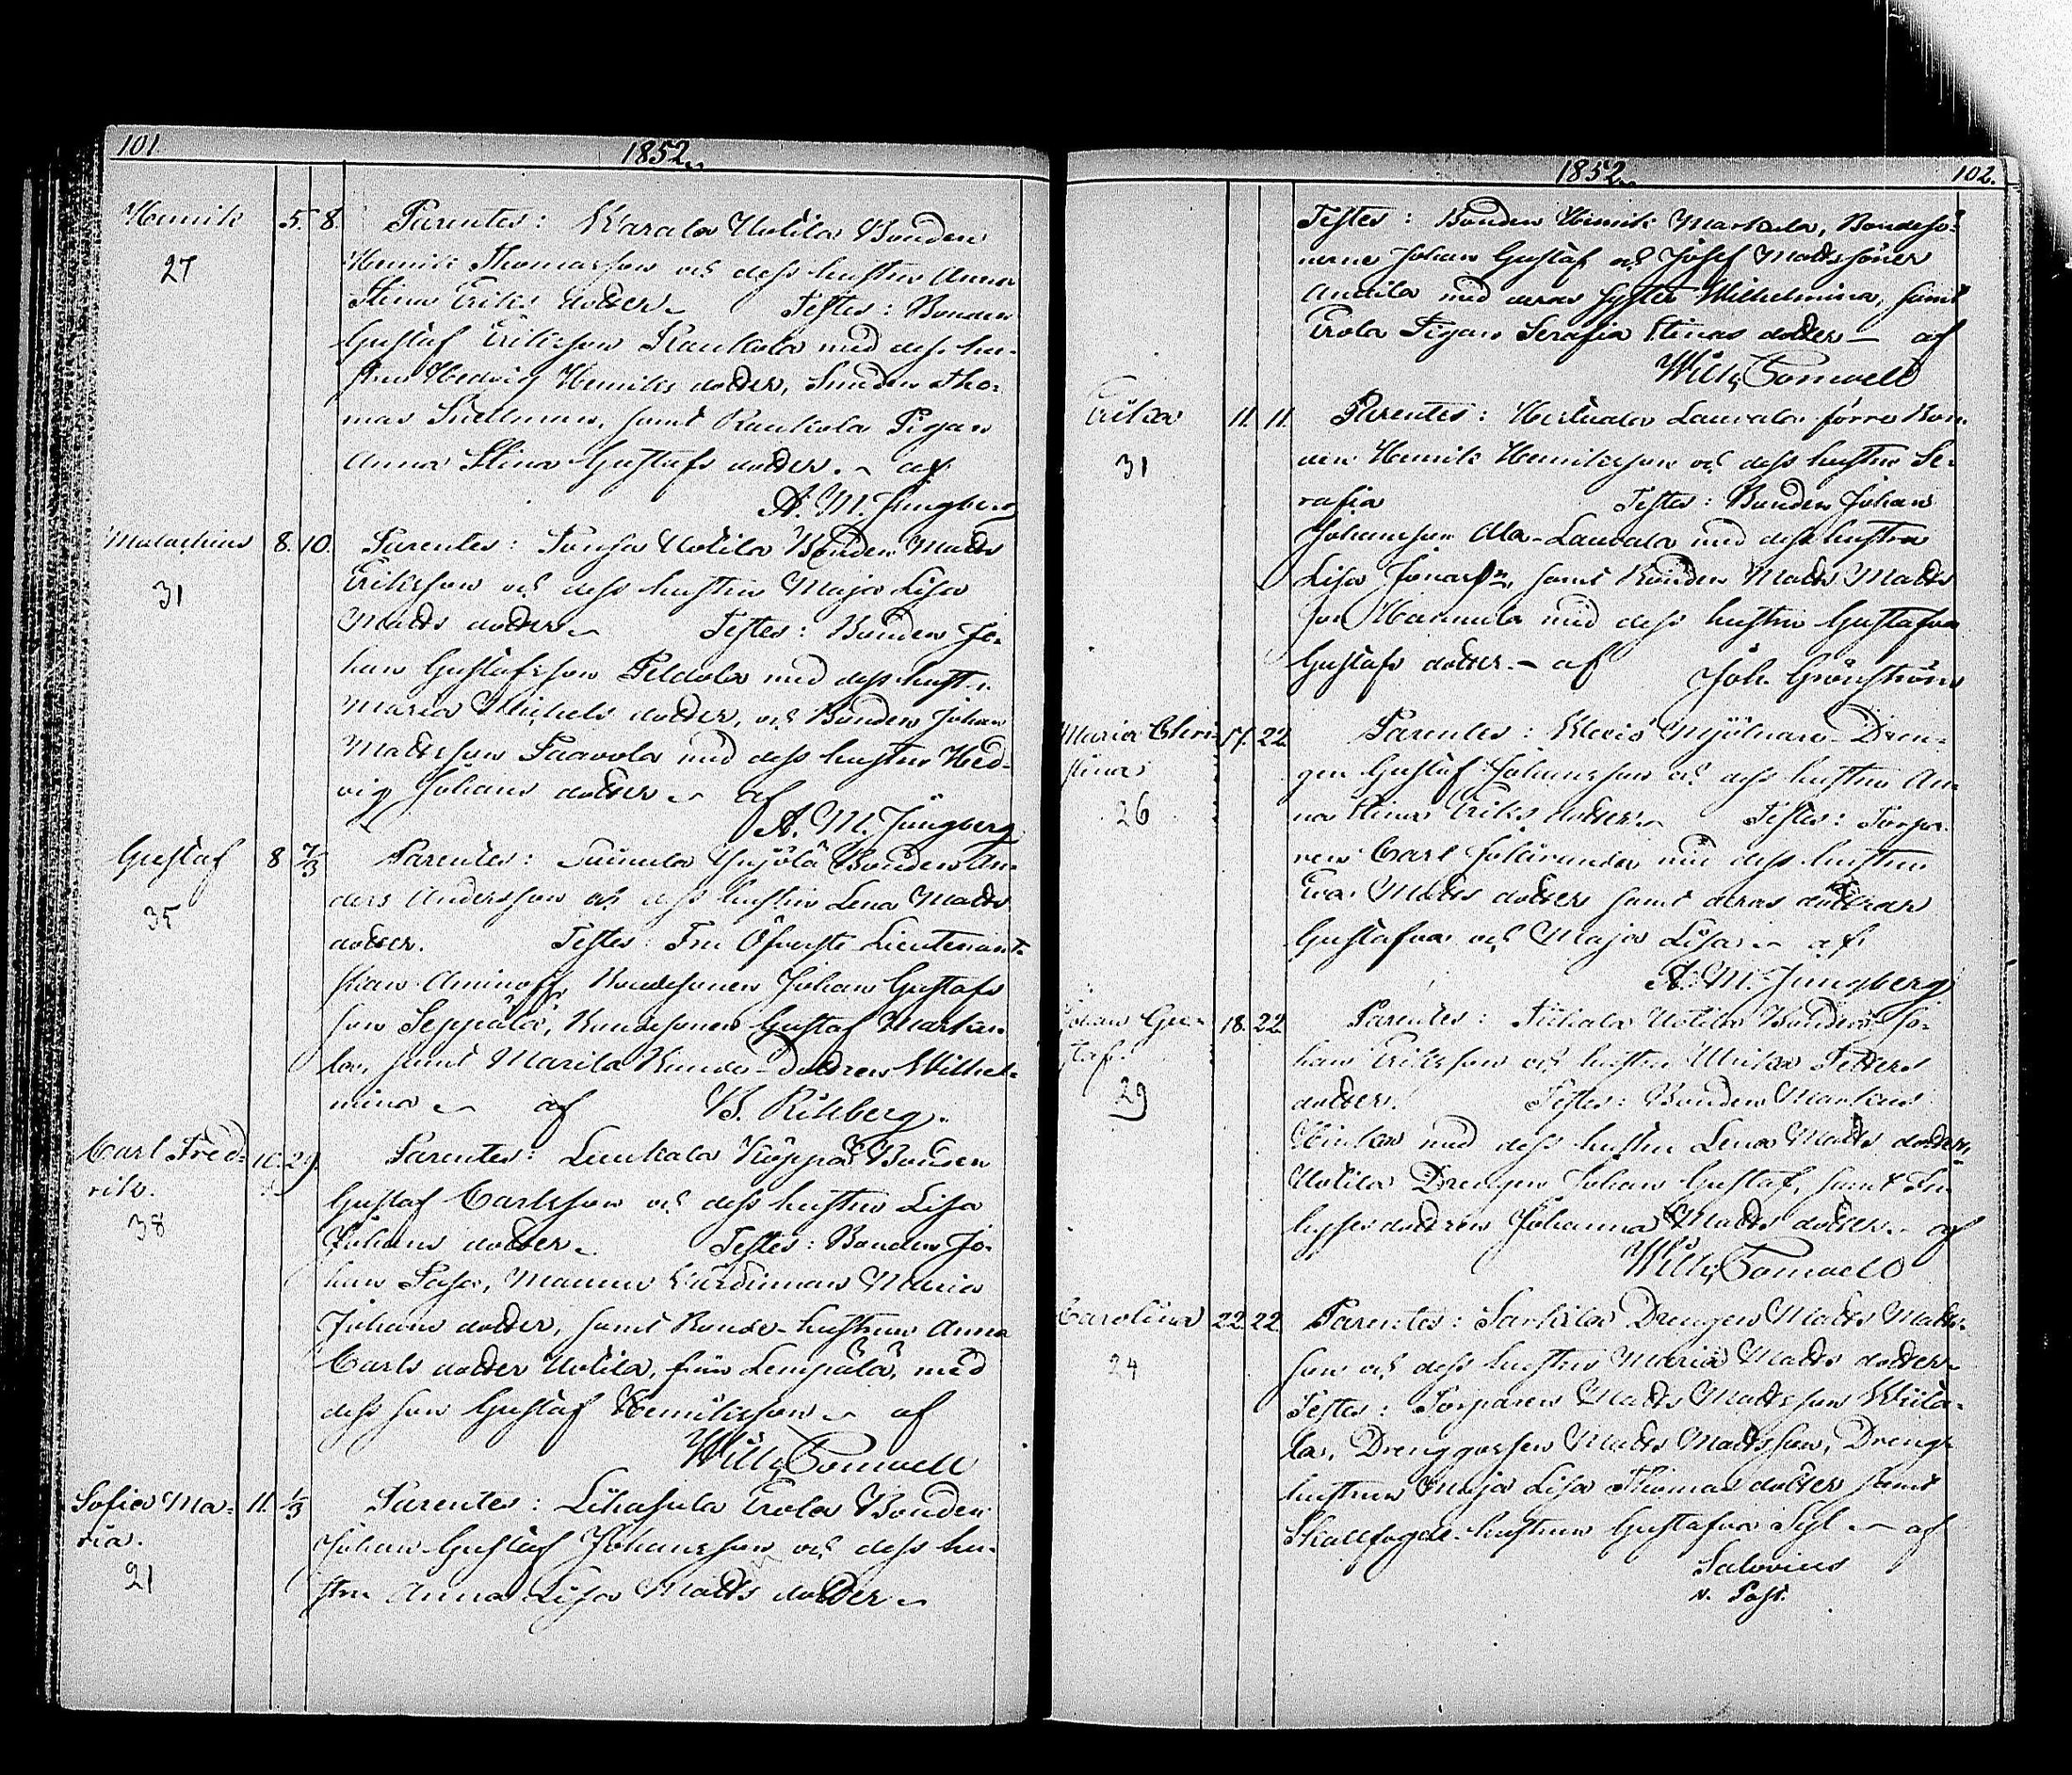 101 1852.
Henrik 5. 8. Parentes: Karala Uotila Bonden
27 Henrik Thomasson och dess hustru Anna
Stina Eriks dotter. Testes: Bonden
Gustaf Eriksson Raukola med dess hu-
stru Hedvig Henriks dotter, Smeden Tho-
mas samt Raukola Pigan
Anna Stina Gustafs dotter. af
A. M. Jungberg
Malachius 8. 10. Parentes: Uotila Bonden Matts
31 Eriksson och dess hustru Maja Lisa
Matts dotter. Testes: Bonden Jo-
han Gustafsson Peldola med dess hustru
Maria Michels dotter, och Bonden Johan
Mattsson Paavola med dess hustru Hed-
vig Johans dotter. af
A. M. Jungberg
Gustaf 8 7/3 Parentes: Yrjölä Bonden An-
35 ders Andersson och dess hustru Lena Matts
dotter. Testes: Fru Öfverste Lieutenant-
skan Aminoff, Bondesonen Johan Gustafs
son Seppälä, Bondesonen Gustaf Marka-
la, samt Marila Bonde-Dottren Wilhel-
mina. af
Carl Fred- 10. 29. Parentes: Lunkala Köppä Bonden
rik. Gustaf Carlsson och dess hustru Lisa
38 Johans dotter. Testes: Bonden Jo-
han Maria
Johans dotter, samt Bonde-hustrun Anna
Carls dotter Uotila, från Lempälä, med
dess son Gustaf Henriksson. af
Willg Tomvell
Sofia Ma- 11. 1/3 Parentes: Lihasula Erola Bonden
ria. Johan Gustaf Johansson och dess hu-
21 stru Anna Lisa Matts dotter.
1852. 102.
Testes: Bonden Henrik Markula, Bondesö-
nerne Johan Gustaf och Josef Mattssöner
Anttila med deras syster Wilhelmina, samt
Erola Pigan Serafia Stinas dotter. af
Willg Tomvell
Erika 11. 11. Parentes: Hertuala Laurala förre Bon-
31 den Henrik Henriksson och dess hustru Se-
rafia Testes: Bonden Johan
Johansson Ala-Laurala med dess hustru
Lisa Jonas dr, samt Bonden Matts Matts
son Hannula med dess hustru Gustafva
Gustafs dotter. af Joh. Grönström
Maria Chri- 17. 22. Parentes: Klevis Mjölnare-Dren-
stina gen Gustaf Johansson och dess hustru An-
26 na Stina Eriks dotter. Testes: Torpa-
ren Carl med dess hustru
Eva Matts dotter samt deras döttrar
Gustafva och Maja Lisa. af
A. M. Jungberg
Johan Gu- 18. 22. Parentes: Uotila Bonden Jo-
staf. han Eriksson och hustru Ulrika Petters
29 dotter. Testes: Bonden Markus
med dess hustru Lena Matts dotter,
Uotila Drengen Johan Gustaf, samt In-
hysses dottren Johanna Matts dotter. af
Willg Tomvell
Carolina 22. 22. Parentes: Sarkila Drengen Matts Matts-
24 son och dess hustru Maria Matts dotter.
Testes: Torparen Matts Mattsson
la, Drenggossen Matts Mattsson, Dreng-
hustrun Maja Lisa Thomas dotter samt
Skallfogde-hustrun Gustafva Syl. af
Salovius
v. Past.